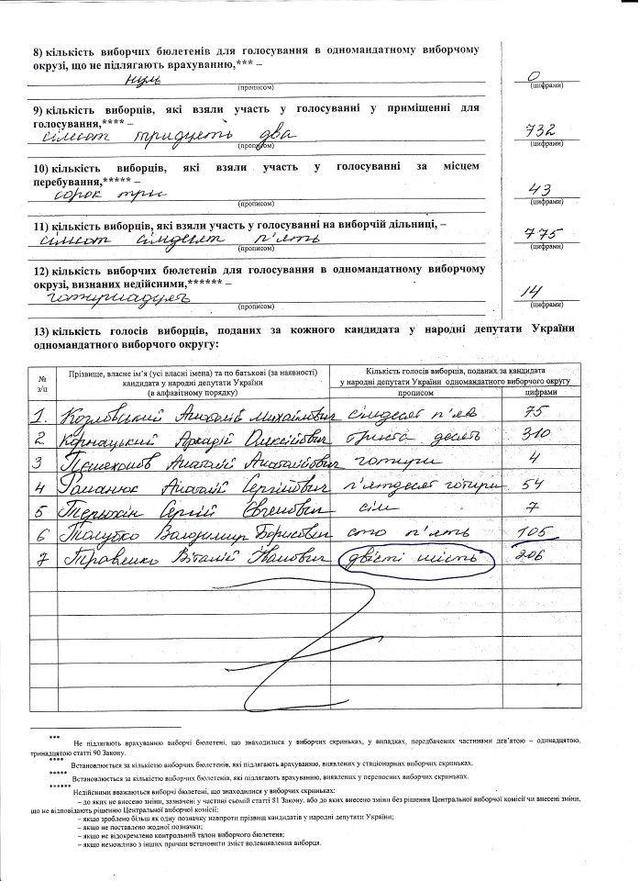 8) кількість виборчих бюлетенів для голосування в одномандатному виборчому
окрузі, що не підлягають врахуванню,*** –
нуль 0
(прописом) (цифрами)
9) кількість виборців, які взяли участь у голосуванні у приміщенні для
голосування,**** –
сімсот тридцять два 732
(прописом) (цифрами)
10) кількість виборців, які взяли участь у голосуванні за місцем
перебування,***** –
сорок три 43
(прописом) (цифрами)
11) кількість виборців, які взяли участь у голосуванні на виборчій дільниці, –
сімсот сімдесят п'ять 775
(прописом) (цифрами)
12) кількість виборчих бюлетенів для голосування в одномандатному виборчому
окрузі, визнаних недійсними,****** –
чотирнадцять 14
(прописом) (цифрами)
13) кількість голосів виборців, поданих за кожного кандидата у народні депутати України
одномандатного виборчого округу:
№ з/ц
Прізвище, власне ім'я (усі власні імена) та по батькові (за наявності)
кандидата у народні депутати України
(в алфавітному порядку)
Кількість голосів виборців, поданих за кандидата
у народні депутати України одномандатного виборчого округу
прописом цифрами
1. Козловський Анатолій Михайлович сімдесят п'ять 75
2 Корнацький Аркадій Олексійович триста десять 310
3 Анатолій Анатолійович чотири 4
4 Романюк Анатолій Сергійович п'ятдесят чотири 54
5 Сергій Євгенович сім 7
6 Толубко Володимир Борисович сто п'ять 105
7 Травленко Віталій Іванович двісті шість 206
*** Не підлягають врахуванню виборчі бюлетені, що знаходилися у виборчих скриньках, у випадках, передбачених частинами дев'ятою – одинадцятою,
тринадцятою статті 90 Закону.
**** Встановлюється за кількістю виборчих бюлетенів, які підлягають врахуванню, виявлених у стаціонарних виборчих скриньках.
***** Встановлюється за кількістю виборчих бюлетенів, які підлягають врахуванню, виявлених у переносних виборчих скриньках.
****** Недійсними вважаються виборчі бюлетені, що знаходилися у виборчих скриньках:
– до яких не внесено зміни, зазначені у частині сьомій статті 81 Закону, або до яких внесено зміни без рішення Центральної виборчої комісії чи внесені зміни,
що не відповідають рішенню Центральної виборчої комісії;
– якщо зроблено більш як одну позначку навпроти прізвищ кандидатів у народні депутати України;
– якщо не поставлено жодної позначки;
– якщо не відокремлено контрольний талон виборчого бюлетеня;
– якщо неможливо з інших причин встановити зміст волевиявлення виборця.